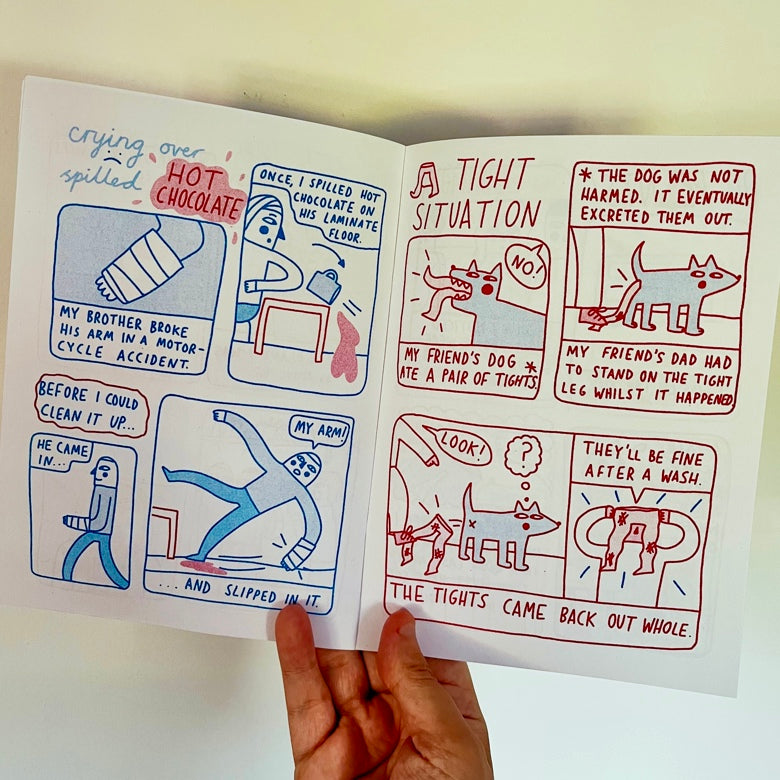 crying over
spilled
HOT
CHOCOLATE
MY BROTHER BROKE
HIS ARM IN A MOTOR-
CYCLE ACCIDENT.
ONCE, I SPILLED HOT
CHOCOLATE ON
HIS LAMINATE
FLOOR.
BEFORE I COULD
CLEAN IT UP...
HE CAME
IN...
MY ARM!
... AND SLIPPED IN IT.
A TIGHT
SITUATION
NO!
MY FRIEND'S DOG *
ATE A PAIR OF TIGHTS.
* THE DOG WAS NOT
HARMED. IT EVENTUALLY
EXCRETED THEM OUT.
MY FRIEND'S DAD HAD
TO STAND ON THE TIGHT
LEG WHILST IT HAPPENED
LOOK!
?
THEY'LL BE FINE
AFTER A WASH.
THE TIGHTS CAME BACK OUT WHOLE.